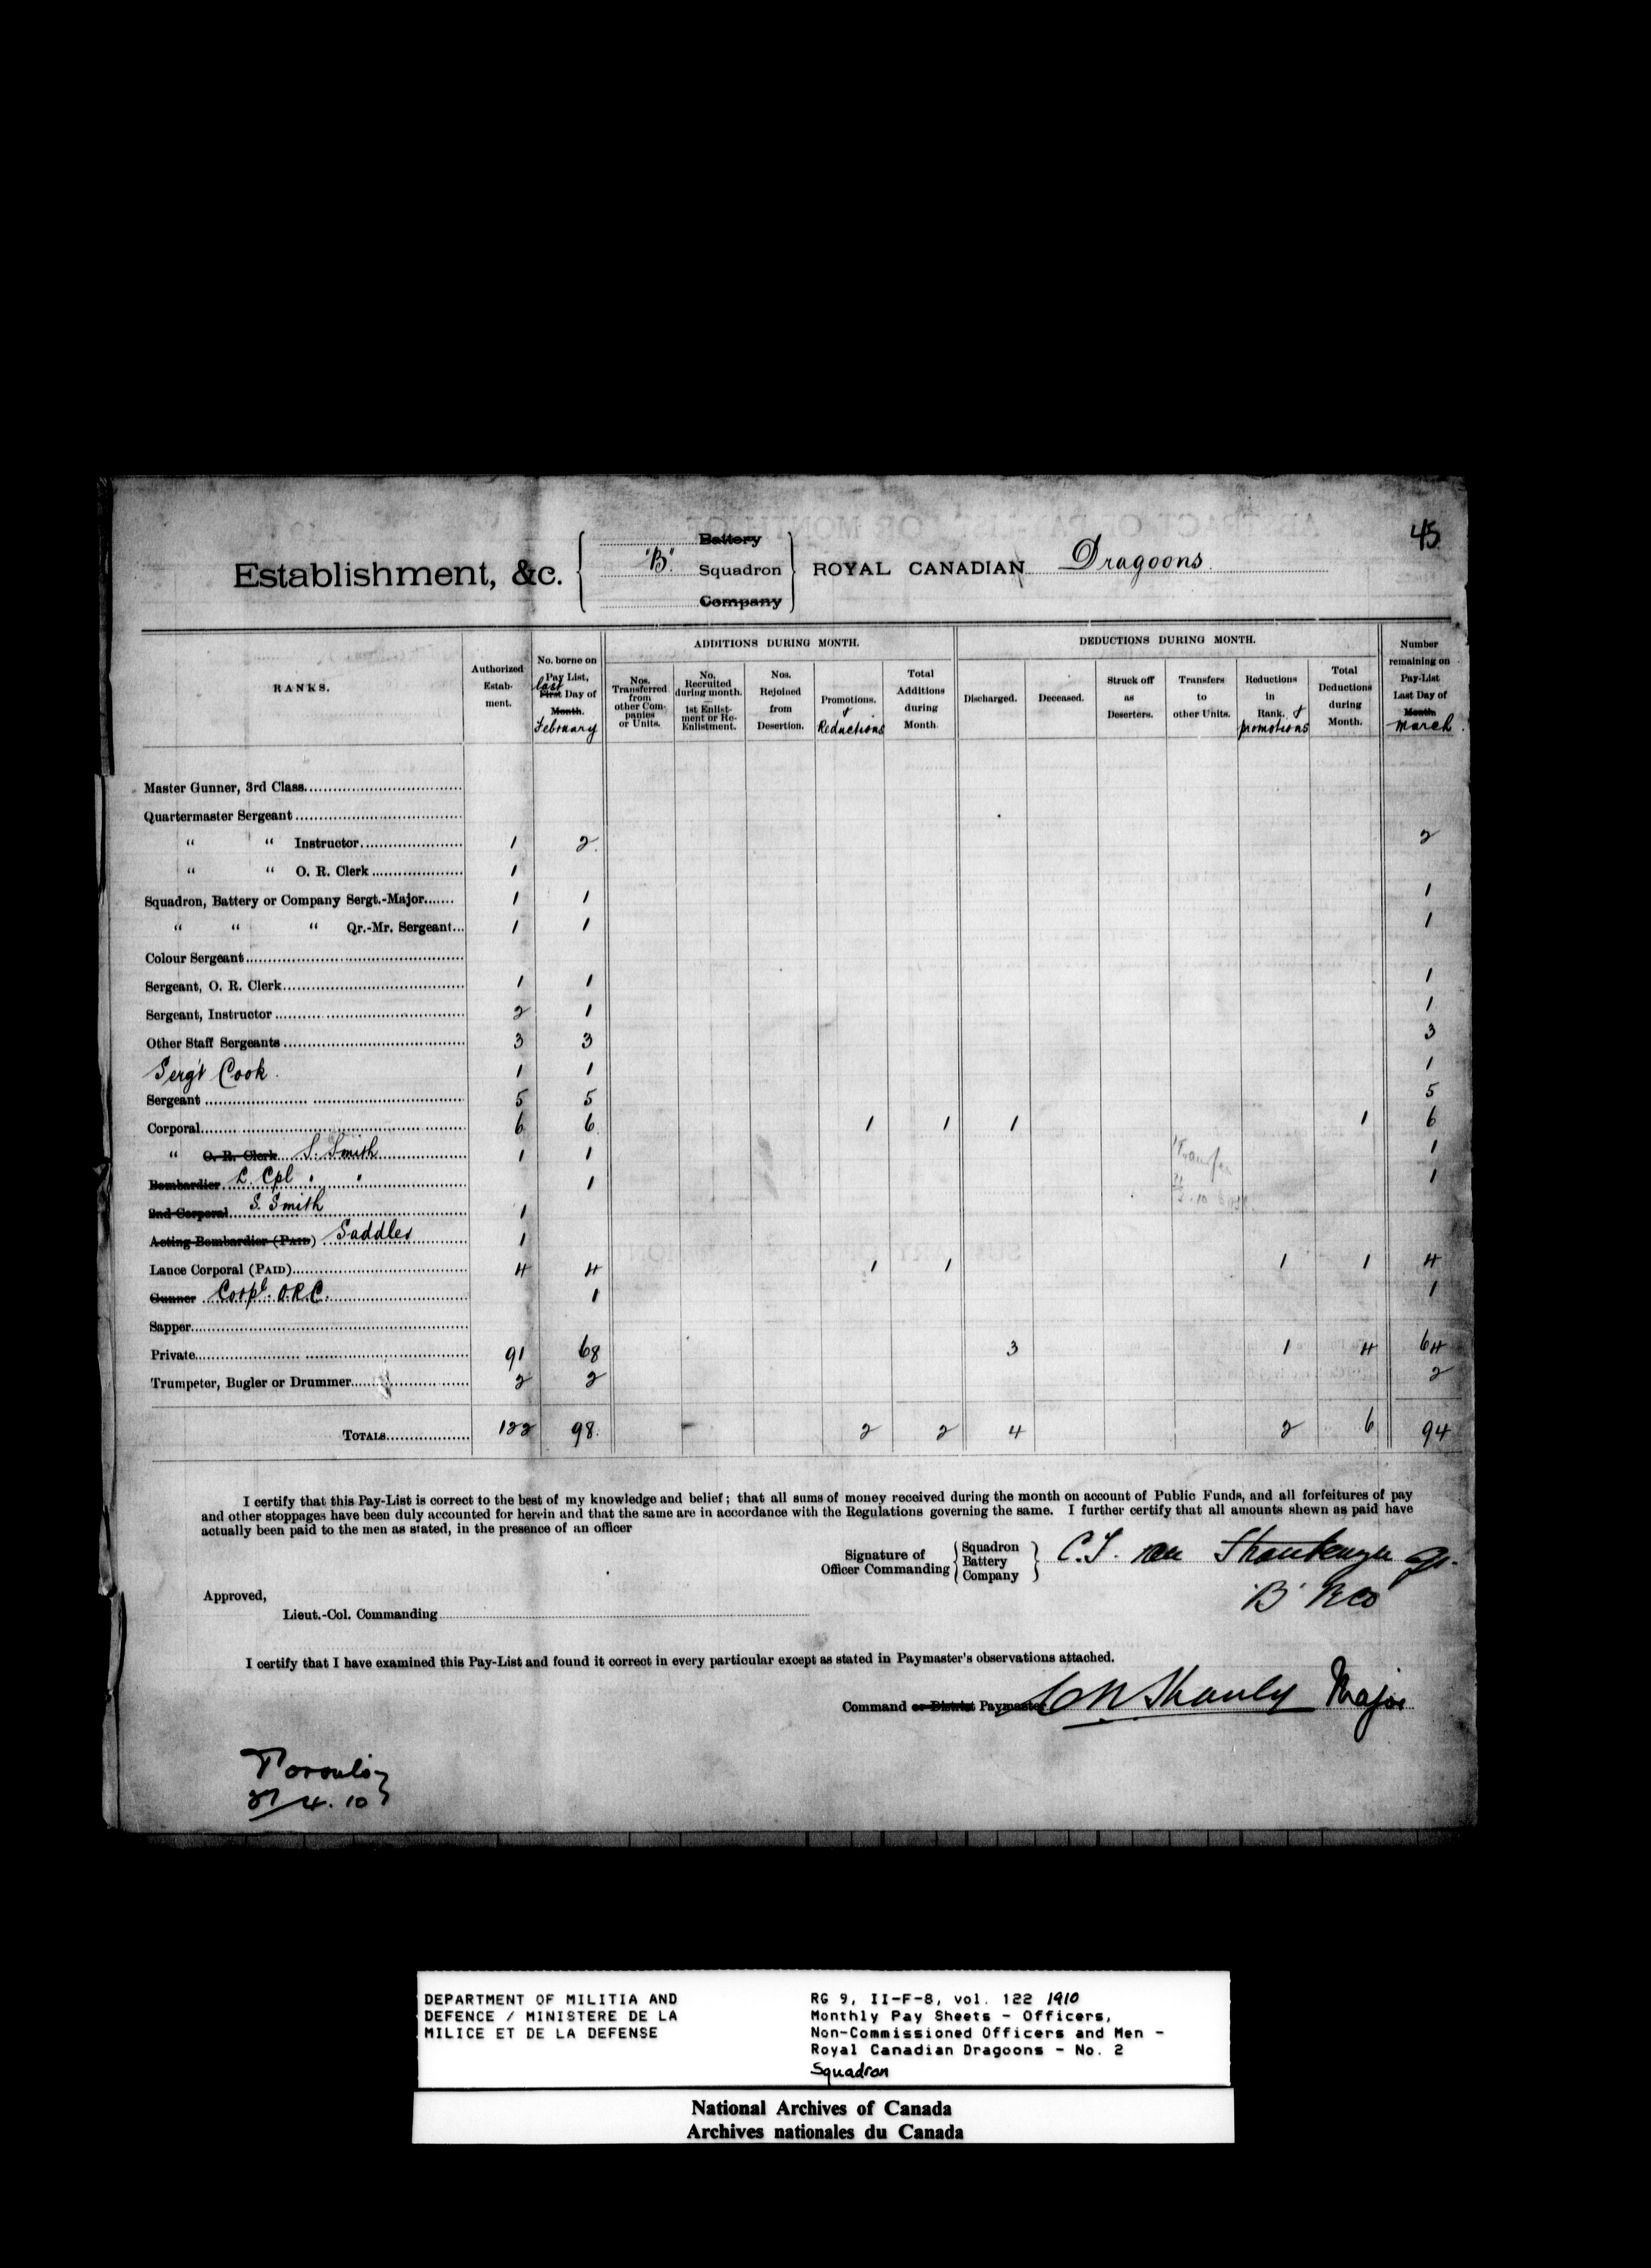 45
Battery
Establishment, &c. "B" Squadron ROYAL CANADIAN Dragoons
Company
ADDITIONS DURING MONTH. DEDUCTIONS DURING MONTH.
RANKS. Authorized Estab- ment. No. borne on Pay List, last First Day of Month. February Nos. Transferred from other Com- panies or Units. No. Recruited during month. 1st Enlist- ment or Re- Enlistment. Nos. Rejoined from Desertion. Promotions. & Reductions Total Additions during Month. Discharged. Deceased. Struck off as Deserters. Transfers to other Units. Reductions in Rank. & promotions Total Deductions during Month. Number remaining on Pay-List Last Day of Month March
Master Gunner, 3rd Class
Quartermaster Sergeant
" " Instructor 1 2 2
" " O. R. Clerk 1
Squadron, Battery or Company Sergt.-Major 1 1 1
" " " Qr.-Mr. Sergeant 1 1 1
Colour Sergeant
Sergeant, O. R. Clerk 1 1 1
Sergeant, Instructor 2 1 1
Other Staff Sergeants 3 3 3
Serg't Cook 1 1 1
Sergeant 5 5 5
Corporal 6 6 1 1 1 1 6
" O. R. Clerk S. Smith 1 1 Transfer 1
Bombardier L. Cpl " " 1 1
2nd Corporal S. Smith 1
Acting Bombardier (PAID) Saddler 1
Lance Corporal (PAID) 4 4 1 1 1 1 4
Gunner Corpl. O.R.C. 1 1
Sapper
Private 91 68 3 1 4 64
Trumpeter, Bugler or Drummer 2 2 2
TOTALS 122 98 2 2 4 2 6 94
I certify that this Pay-List is correct to the best of my knowledge and belief; that all sums of money received during the month on account of Public Funds, and all forfeitures of pay
and other stoppages have been duly accounted for herein and that the same are in accordance with the Regulations governing the same. I further certify that all amounts shewn as paid have
actually been paid to the men as stated, in the presence of an officer
Signature of Officer Commanding Squadron Battery Company C.T. van Straubenzee
"B" RCD
Approved,
Lieut.-Col. Commanding
I certify that I have examined this Pay-List and found it correct in every particular except as stated in Paymaster's observations attached.
Command or District Paymaster C N Shanly Major
Toronto
27/4.10
DEPARTMENT OF MILITIA AND
DEFENCE / MINISTERE DE LA
MILICE ET DE LA DEFENSE
RG 9, II-F-8, vol. 122 1910
Monthly Pay Sheets - Officers,
Non-Commissioned Officers and Men -
Royal Canadian Dragoons - No. 2
Squadron
National Archives of Canada
Archives nationales du Canada